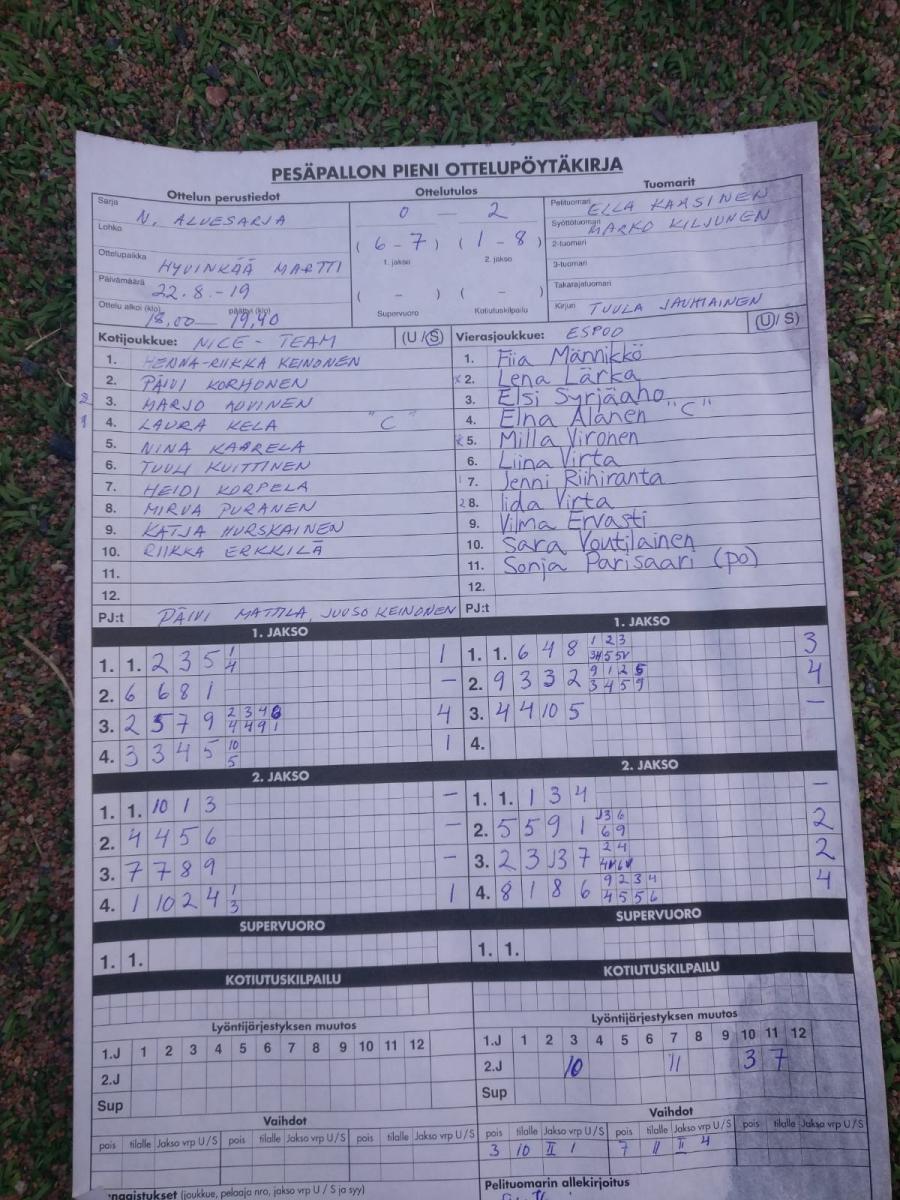 PESÄPALLON PIENI OTTELUPÖYTÄKIRJA
Ottelun perustiedot Ottelutulos Tuomarit
Sarja N. ALUESARJA
Lohko
Ottelupaikka HYVINKÄÄ MARTTI
Päivämäärä 22.8.-19
Ottelu alkoi (klo) 18.00 — päättyi (klo) 19,40
0 — 2
( 6 - 7 ) ( 1 - 8 )
1. jakso 2. jakso
( - ) ( - )
Supervuoro Kotiutuskilpailu
Pelituomari ELLA KAASINEN
Syöttötuomari MARKO KILJUNEN
2-tuomari
3-tuomari
Takarajatuomari
Kirjuri TUULA JAUHIAINEN
Kotijoukkue: NICE-TEAM (U/S)
1. HENNA-RIIKKA KEINONEN
2. PÄIVI KORHONEN
3. MARJO AUVINEN
4. LAURA KELA "C"
5. NINA KAARELA
6. TUULI KUITTINEN
7. HEIDI KORPELA
8. MIRVA PURANEN
9. KATJA HURSKAINEN
10. RIIKKA ERKKILÄ
11.
12.
PJ:t PÄIVI MATTILA, JUUSO KEINONEN
Vierasjoukkue: ESPOO (U/S)
1. Fiia Männikkö
2. Lena Lärka
3. Elsi Syrjäaho
4. Elna Alanen "C"
5. Milla Vironen
6. Liina Virta
7. Jenni Riihiranta
8. Iida Virta
9. Vilma Ervasti
10. Sara Voutilainen
11. Sonja Parisaari (po)
12.
PJ:t
1. JAKSO
1. 1. 2 3 5 1/4 1
2. 6 6 8 1 —
3. 2 5 7 9 2 3 4 8 / 4 4 9 1 4
4. 3 3 4 5 10/5 1
1. JAKSO
1. 1. 6 4 8 1 2 3 3
2. 9 3 3 2 9 1 2 5 / 3 4 5 9 4
3. 4 4 10 5 —
4.
2. JAKSO
1. 1. 10 1 3 —
2. 4 4 5 6 —
3. 7 7 8 9 —
4. 1 10 2 4 1/3 1
2. JAKSO
1. 1. 1 3 4 —
2. 5 5 9 1 6 9 2
3. 2 3 7 2 4 2
4. 8 1 8 6 9 2 3 4 / 4 5 5 6 4
SUPERVUORO
1. 1.
SUPERVUORO
1. 1.
KOTIUTUSKILPAILU
KOTIUTUSKILPAILU
Lyöntijärjestyksen muutos
1.J 1 2 3 4 5 6 7 8 9 10 11 12
2.J
Sup
Lyöntijärjestyksen muutos
1.J 1 2 3 4 5 6 7 8 9 10 11 12
2.J 10 11 3 7
Sup
Vaihdot
pois tilalle Jakso vrp U/S pois tilalle Jakso vrp U/S pois tilalle Jakso vrp U/S
Vaihdot
pois tilalle Jakso vrp U/S pois tilalle Jakso vrp U/S pois tilalle Jakso vrp U/S
3 10 II 1 7 11 II 4
(joukkue, pelaaja nro, jakso vrp U/S ja syy)
Pelituomarin allekirjoitus